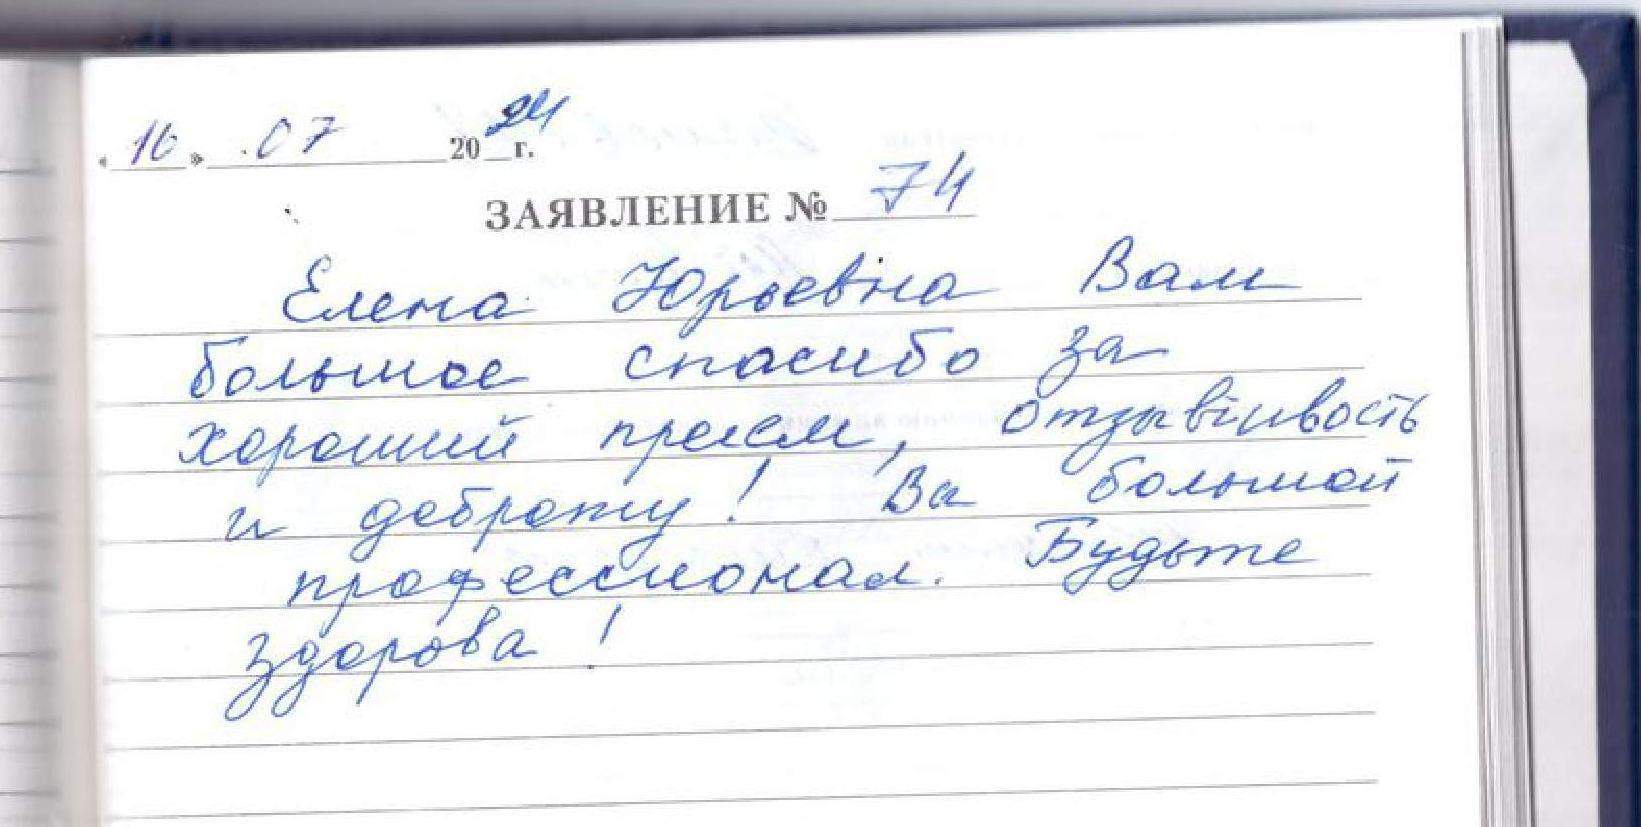 « 16 » .07 2024 г.
ЗАЯВЛЕНИЕ № 74
Елена Юрьевна Вам
большое спасибо за
хороший прием, отзывчивость
и доброту! Вы большой
профессионал. Будьте
здорова!